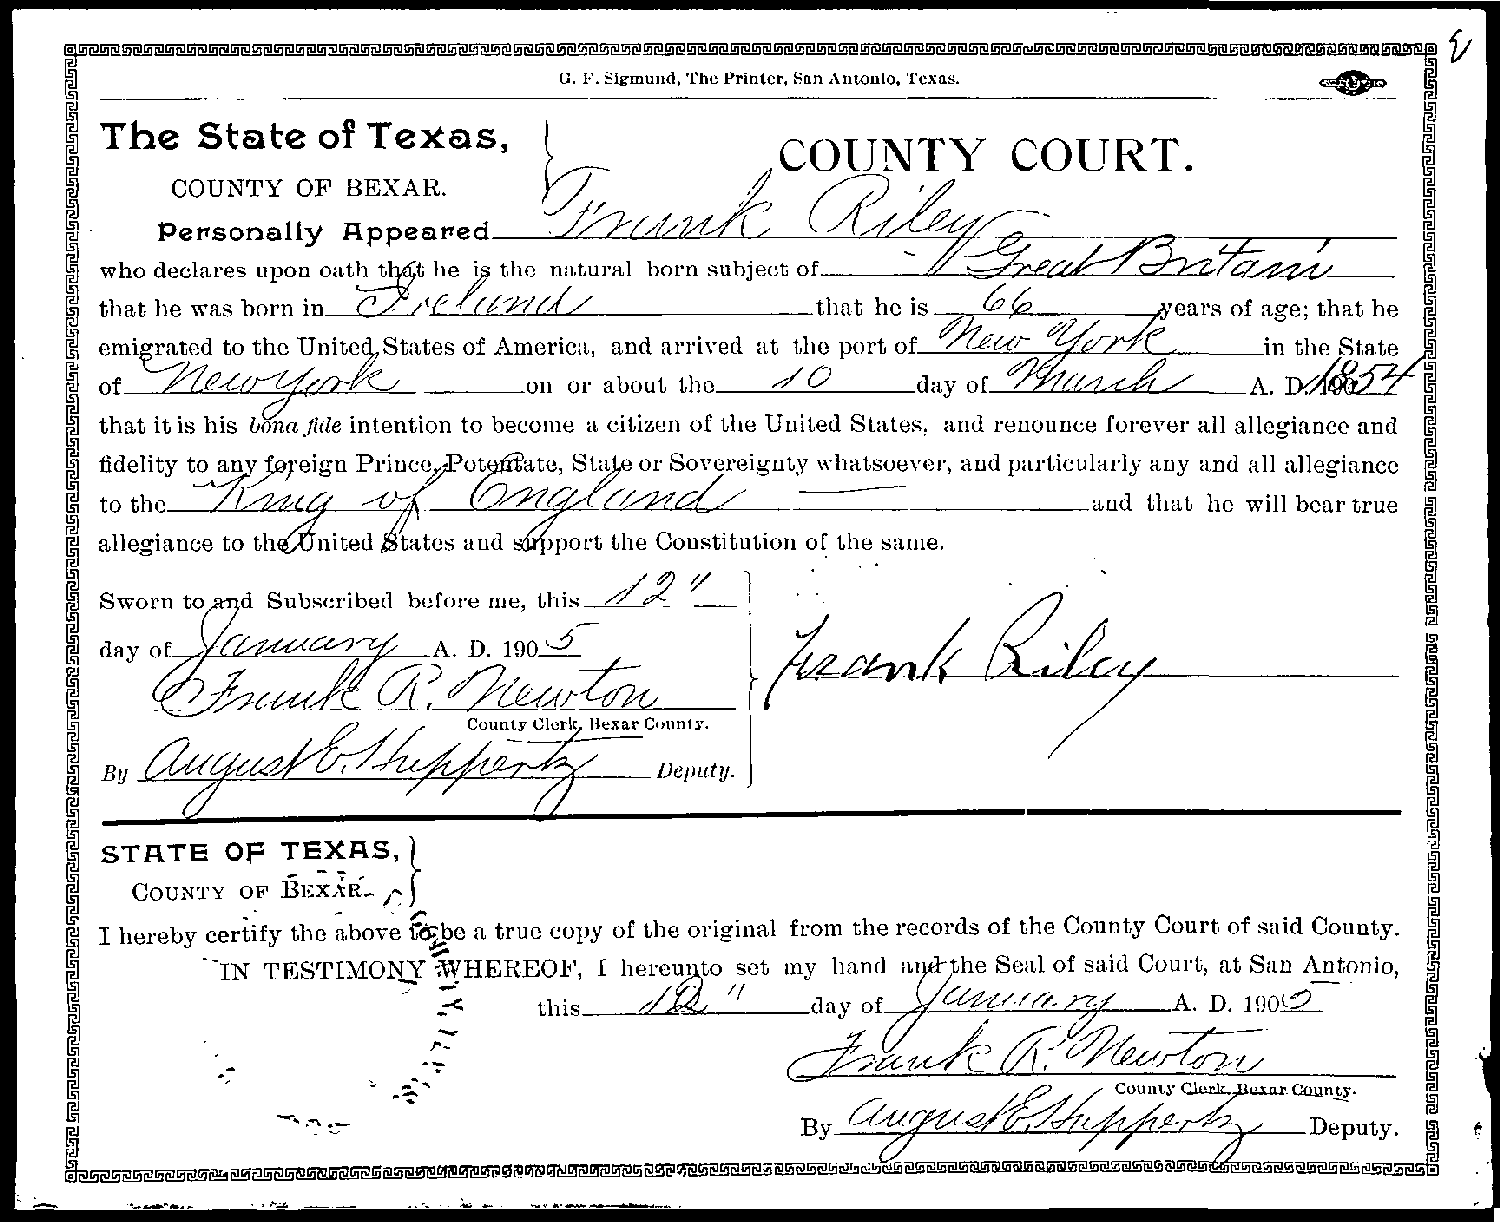 G. F. Sigmund, The Printer, San Antonio, Texas.
The State of Texas,
COUNTY OF BEXAR.
COUNTY COURT.
Personally Appeared Frank Riley
who declares upon oath that he is the natural born subject of Great Britain
that he was born in Ireland that he is 66 years of age; that he
emigrated to the United States of America, and arrived at the port of New York in the State
of New York on or about the 10 day of March A. D. 1854
that it is his bona fide intention to become a citizen of the United States, and renounce forever all allegiance and
fidelity to any foreign Prince, Potentate, State or Sovereignty whatsoever, and particularly any and all allegiance
to the King of England and that he will bear true
allegiance to the United States and support the Constitution of the same.
Sworn to and Subscribed before me, this 12"
day of January A. D. 1905
Frank Riley
Frank R. Newton
County Clerk, Bexar County.
By August E. Huppertz Deputy.
STATE OF TEXAS,
COUNTY OF BEXAR.
I hereby certify the above to be a true copy of the original from the records of the County Court of said County.
IN TESTIMONY WHEREOF, I hereunto set my hand and the Seal of said Court, at San Antonio,
this 12" day of January A. D. 1905
Frank R. Newton
County Clerk, Bexar County.
By August E. Huppertz Deputy.